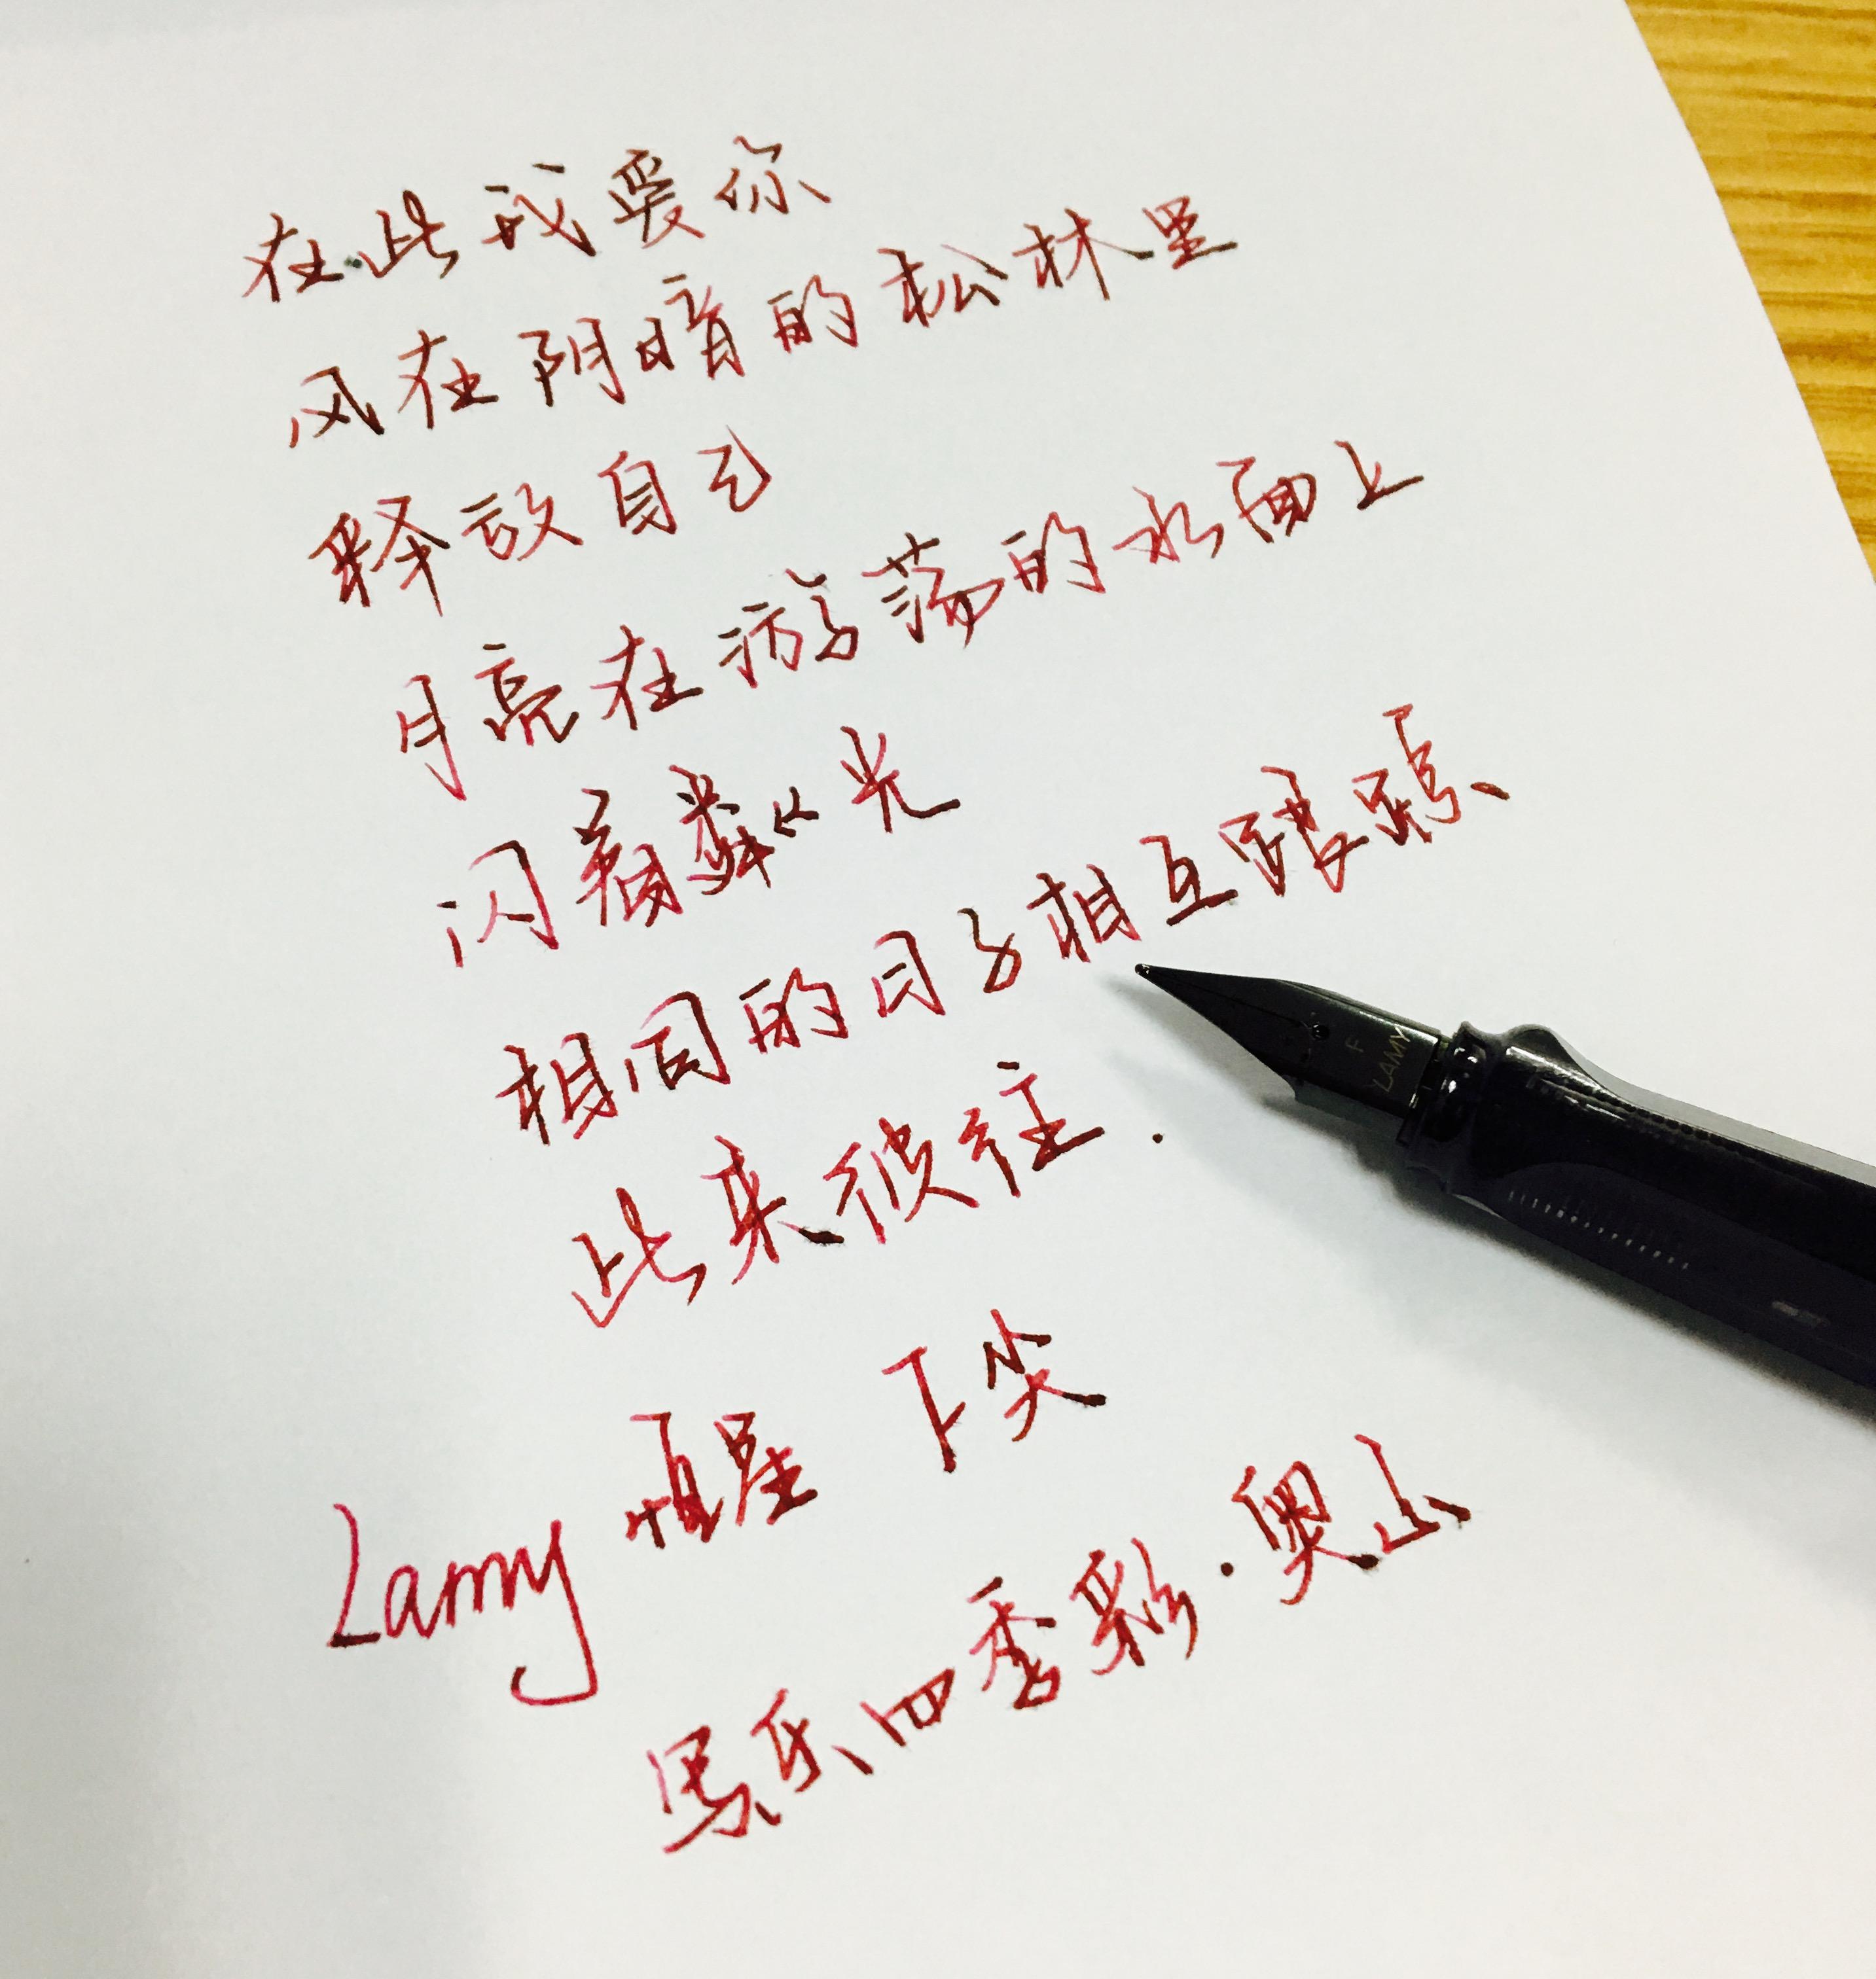 在此我爱你
风在阴暗的松林里
释放自己
月亮在游荡的水面上
闪着粼々光
相同的日子相互跟踪
此来彼往.
Lamy 恒星 F尖
写乐四季彩·奥山
F
LAMY